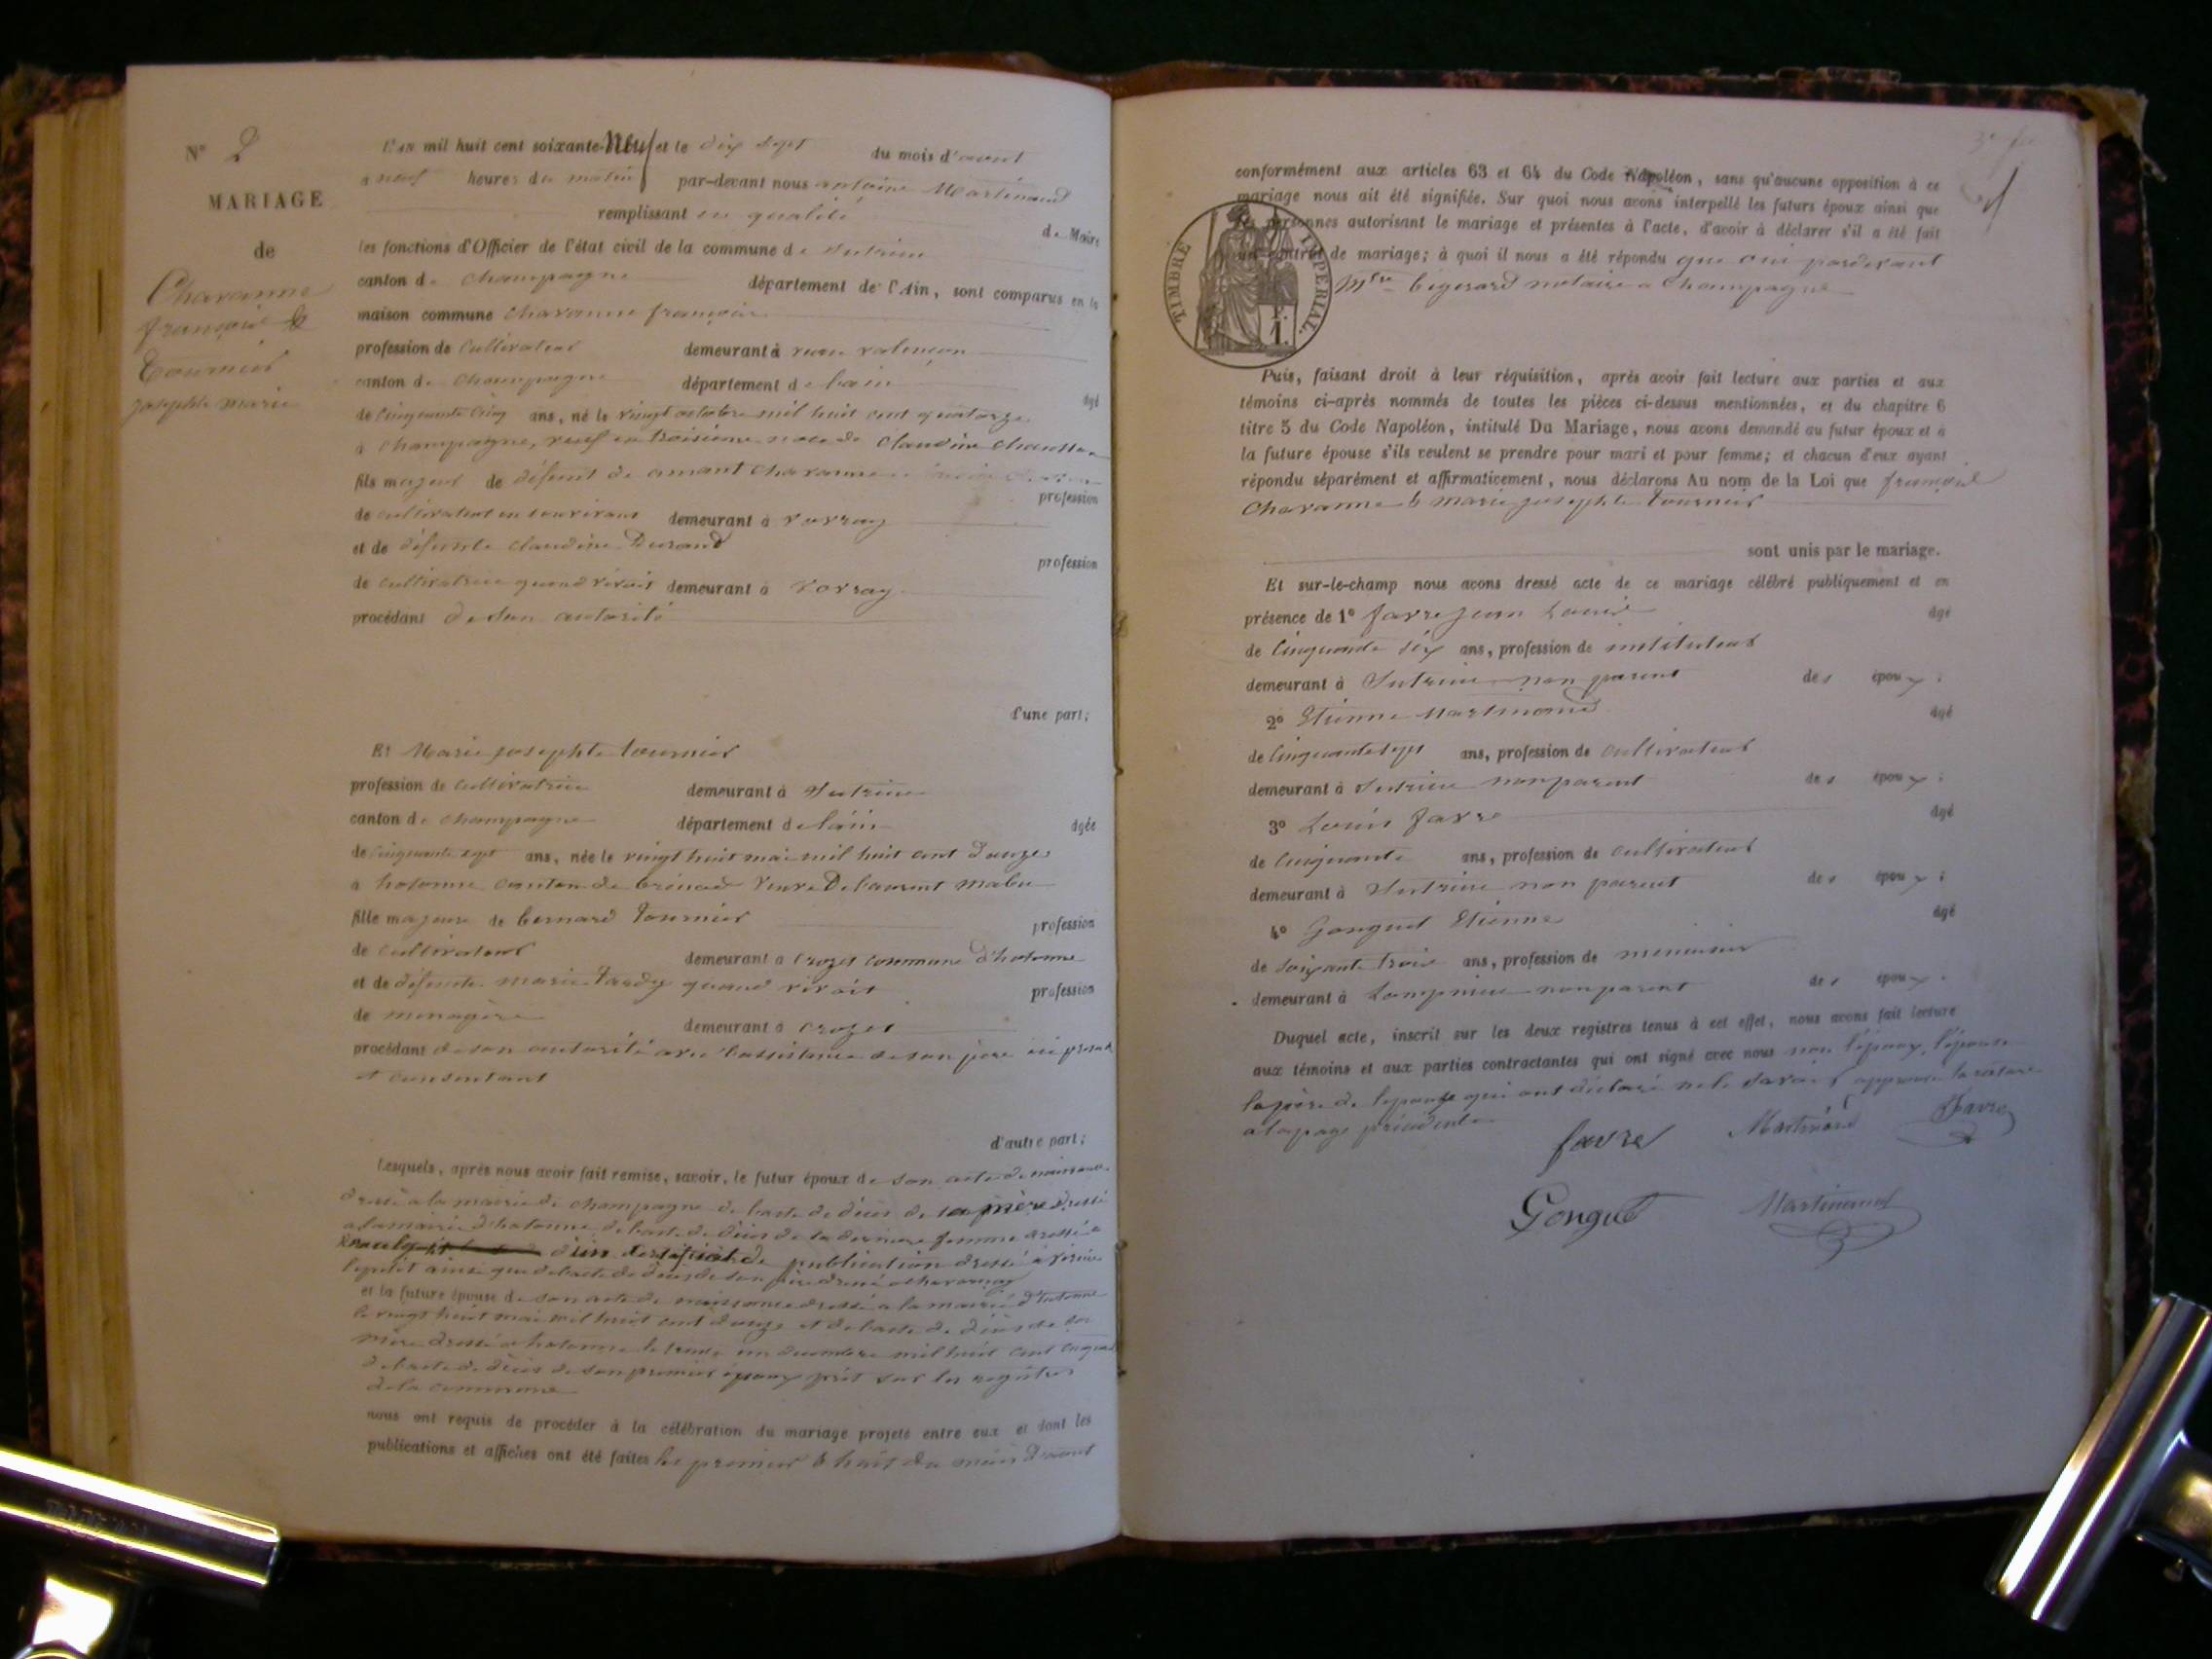 N° 2
MARIAGE
de
Chavanne
françois &
Tournier
josephte marie
L'AN mil huit cent soixante-Neuf et le dix sept du mois d'aout
à neuf heures du matin par-devant nous antoine Martinand
remplissant en qualité de Maire
les fonctions d'Officier de l'état civil de la commune de Sutrieu
canton de Champagne département de l'Ain, sont comparus en la
maison commune Chavanne françois
profession de Cultivateur demeurant à
canton de Champagne département de lain
âgé
de Cinquante Cinq ans, né le vingt octobre mil huit cent quatorze
à Champagne, veuf en troisième noce de Claudine
fils majeur de défunt de amant Chavanne
profession
de cultivateur en son vivant demeurant à vovray
et de défunte Claudine Durand
profession
de cultivatrice quand vivait demeurant à vovray
procédant de son autorité
d'une part;
Et Marie josephte tournier
profession de Cultivatrice demeurant à Sutrieu
canton de Champagne département de lain âgée
de Cinquante sept ans, née le vingt huit mai mil huit cent douze
à hotonne Canton de brénod veuve De laurent mabu
fille majeure de bernard tournier profession
de cultivateur demeurant à Crozet commune d'hotonne
et de défunte marie tardy quand vivait profession
de ménagère demeurant à Crozet
procédant de son autorité avec l'assistance de son père ici présent
et consentant
d'autre part;
Lesquels, après nous avoir fait remise, savoir, le futur époux de son acte de naissance
dressé a la mairie de champagne de l'acte de décès de sa mère dressé
a la mairie d'hotonne, de l'acte de décès de sa dernière femme dressé a
d'un certificat de publication dressé à
lepetit ainsi que de l'acte de décès de son père dressé a
et la future épouse de son acte de naissance dressé a la mairie d'hotonne
le vingt huit mai mil huit cent douze et de l'acte de décès de sa
mère dressé a hotonne le trente un décembre mil huit cent
de l'acte de décès de son premier époux prit sur les registres
de la commune
nous ont requis de procéder à la célébration du mariage projeté entre eux et dont les
publications et affiches ont été faites les premier & huit du mois d'aout
conformément aux articles 63 et 64 du Code Napoléon, sans qu'aucune opposition à ce
mariage nous ait été signifiée. Sur quoi nous avons interpellé les futurs époux ainsi que
les personnes autorisant le mariage et présentes à l'acte, d'avoir à déclarer s'il a été fait
un contrat de mariage; à quoi il nous a été répondu que oui pardevant
Mtre bigerard notaire a Champagne
TIMBRE IMPERIAL.
1F.
Puis, faisant droit à leur réquisition, après avoir fait lecture aux parties et aux
témoins ci-après nommés de toutes les pièces ci-dessus mentionnées, et du chapitre 6
titre 5 du Code Napoléon, intitulé Du Mariage, nous avons demandé au futur époux et à
la future épouse s'ils veulent se prendre pour mari et pour femme; et chacun d'eux ayant
répondu séparément et affirmativement, nous déclarons Au nom de la Loi que françois
Chavanne & marie josephte tournier
sont unis par le mariage.
Et sur-le-champ nous avons dressé acte de ce mariage célébré publiquement et en
présence de 1° favre jean Louis âgé
de Cinquante six ans, profession de instituteur
demeurant à Sutrieu non parent des époux;
2° Etienne Martinand âgé
de Cinquante sept ans, profession de Cultivateur
demeurant à Sutrieu non parent des époux;
3° Louis favre âgé
de Cinquante ans, profession de cultivateur
demeurant à Sutrieu non parent des époux;
4° Gonguet Etienne âgé
de Soixante trois ans, profession de menuisier
demeurant à Lompnieu non parent des époux.
Duquel acte, inscrit sur les deux registres tenus à cet effet, nous avons fait lecture
aux témoins et aux parties contractantes qui ont signé avec nous non l'époux, l'épouse
le père de l'épouse qui ont déclaré ne le savoir approuvé la rature
a la page précédente
favre Martinand Favre
Gonguet Martinand